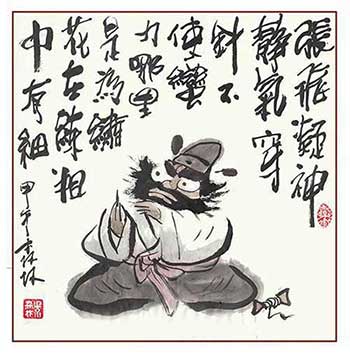 張飛凝神
靜氣穿
針不
使蠻
力哪里
是為繡
花在練粗
中有細
甲午